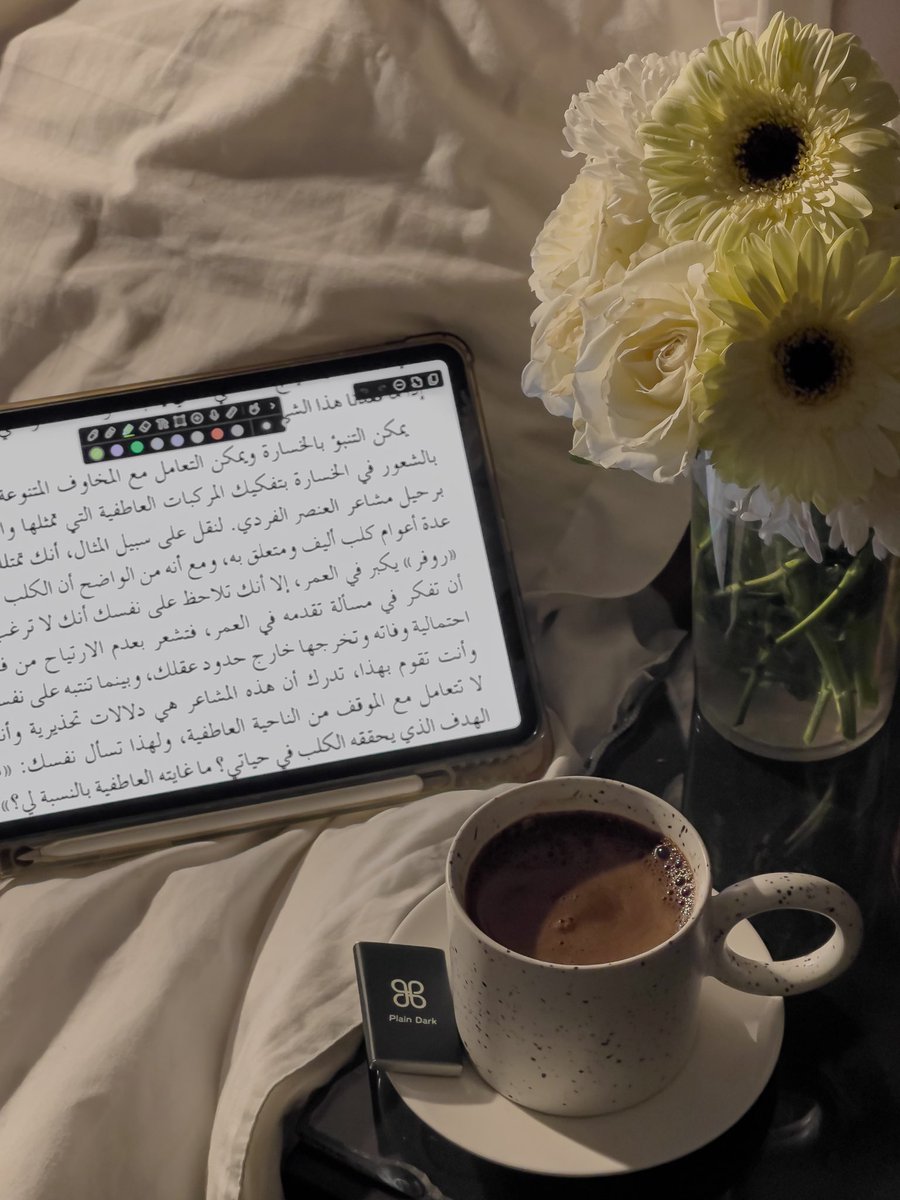 هذا الشيء
يمكن التنبؤ بالخسارة ويمكن التعامل مع المخاوف المتنوعة
بالشعور في الخسارة بتفكيك المركبات العاطفية التي تمثلها
برحيل مشاعر العنصر الفردي. لنقل على سبيل المثال، أنك تمتلك
عدة أعوام كلب أليف ومتعلق به، ومع أنه من الواضح أن الكلب
«روفر» يكبر في العمر، إلا أنك تلاحظ على نفسك أنك لا ترغب
أن تفكر في مسألة تقدمه في العمر، فتشعر بعدم الارتياح من
احتمالية وفاته وتخرجها خارج حدود عقلك، وبينما تنتبه على
وأنت تقوم بهذا، تدرك أن هذه المشاعر هي دلالات تحذيرية
لا تتعامل مع الموقف من الناحية العاطفية، ولهذا تسأل نفسك:
الهدف الذي يحققه الكلب في حياتي؟ ما غايته العاطفية بالنسبة لي؟»
Plain Dark